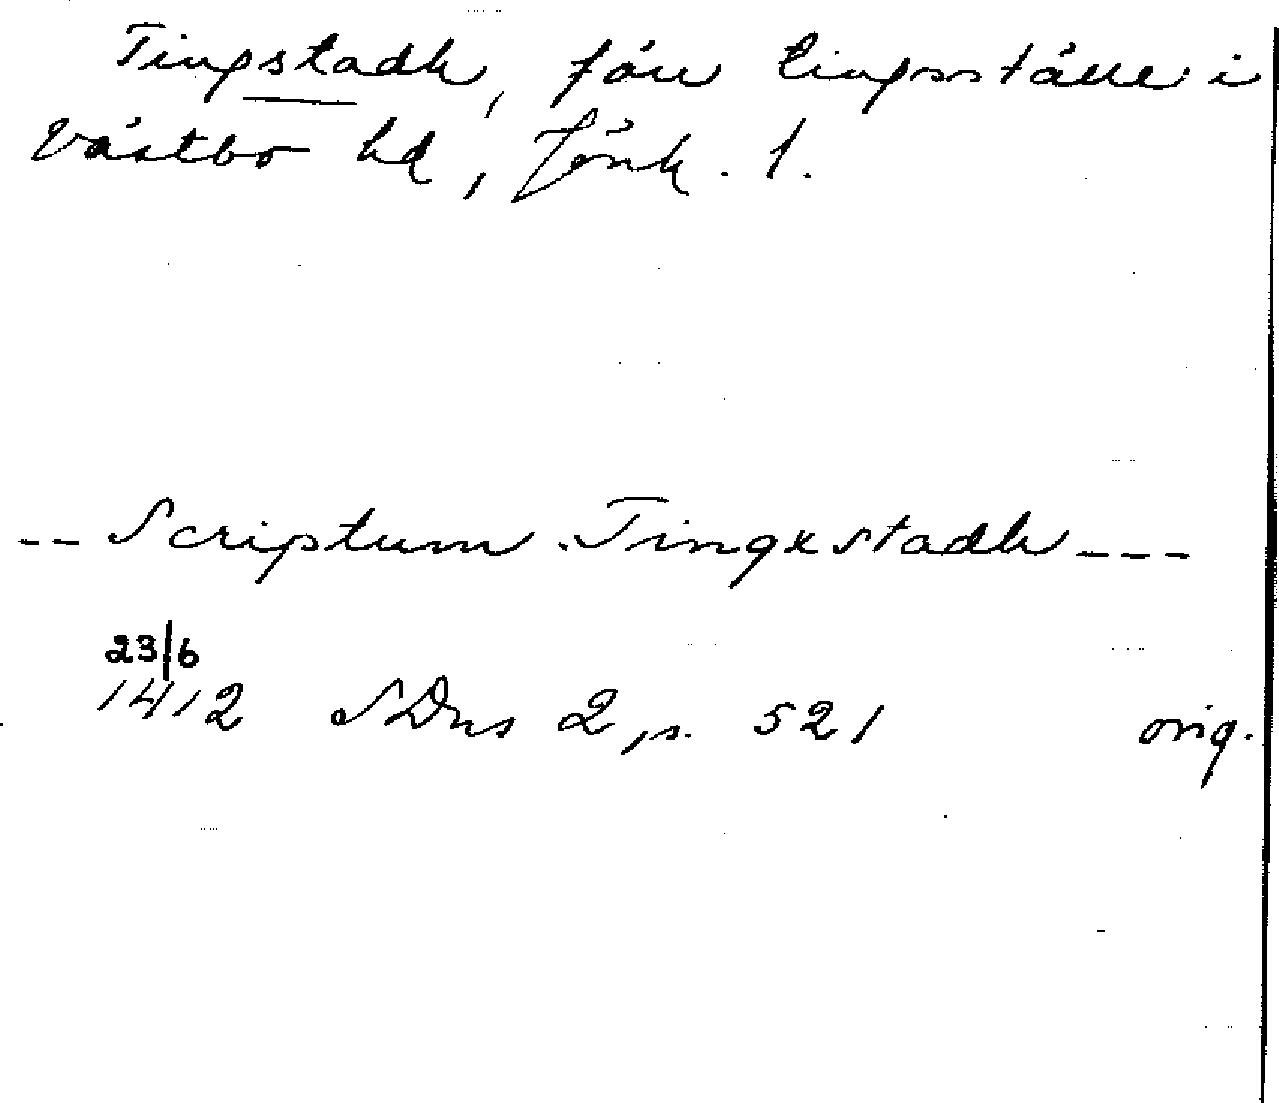 Tingstadh, förr tingsställe i
Västbo hd, Jönk. l.
-- Scriptum Tingxstadh ---
23/6
1412 SDns 2, s. 521 orig.